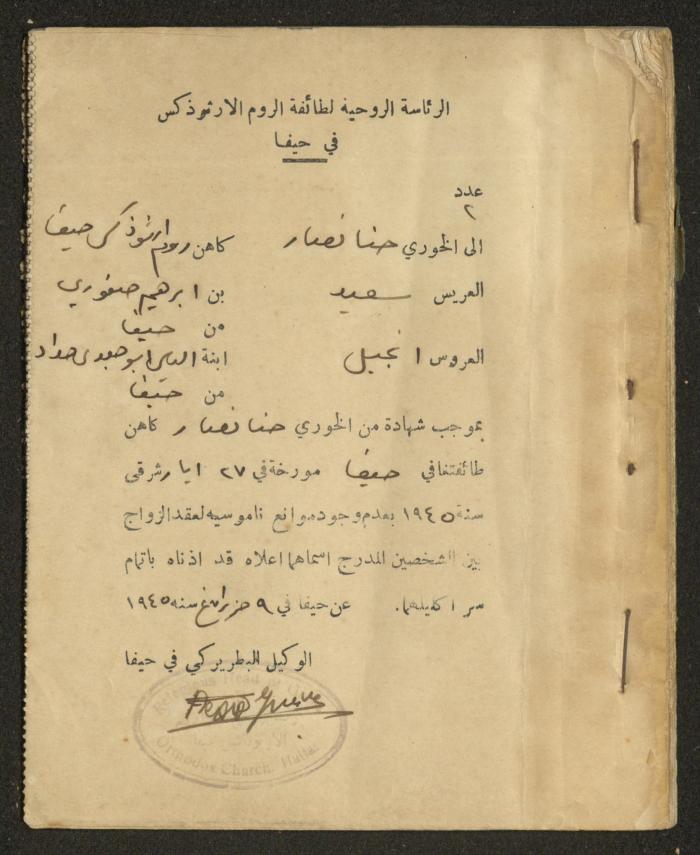 الرئاسة الروحية لطائفة الروم الارثوذكس
في حيفا
عدد
٢
الى الخوري حنا نصار كاهن روم ارثوذكس حيفا
العريس سعيد بن ابرهيم صفوري
من حيفا
العروس انجيل ابنة الياس حداد
من حيفا
بموجب شهادة من الخوري حنا نصار كاهن
طائفتنا في حيفا مورخة في ٢٧ ايار شرقي
سنة ١٩٤٥ بعدم وجود موانع ناموسيه لعقد الزواج
بين الشخصين المدرج اسماهما اعلاه قد اذناه باتمام
سر اكليلهما. عن حيفا في ٩ حزيران غ سنه ١٩٤٥
الوكيل البطريركي في حيفا
Religious Head
Orthodox Church. Haifa.